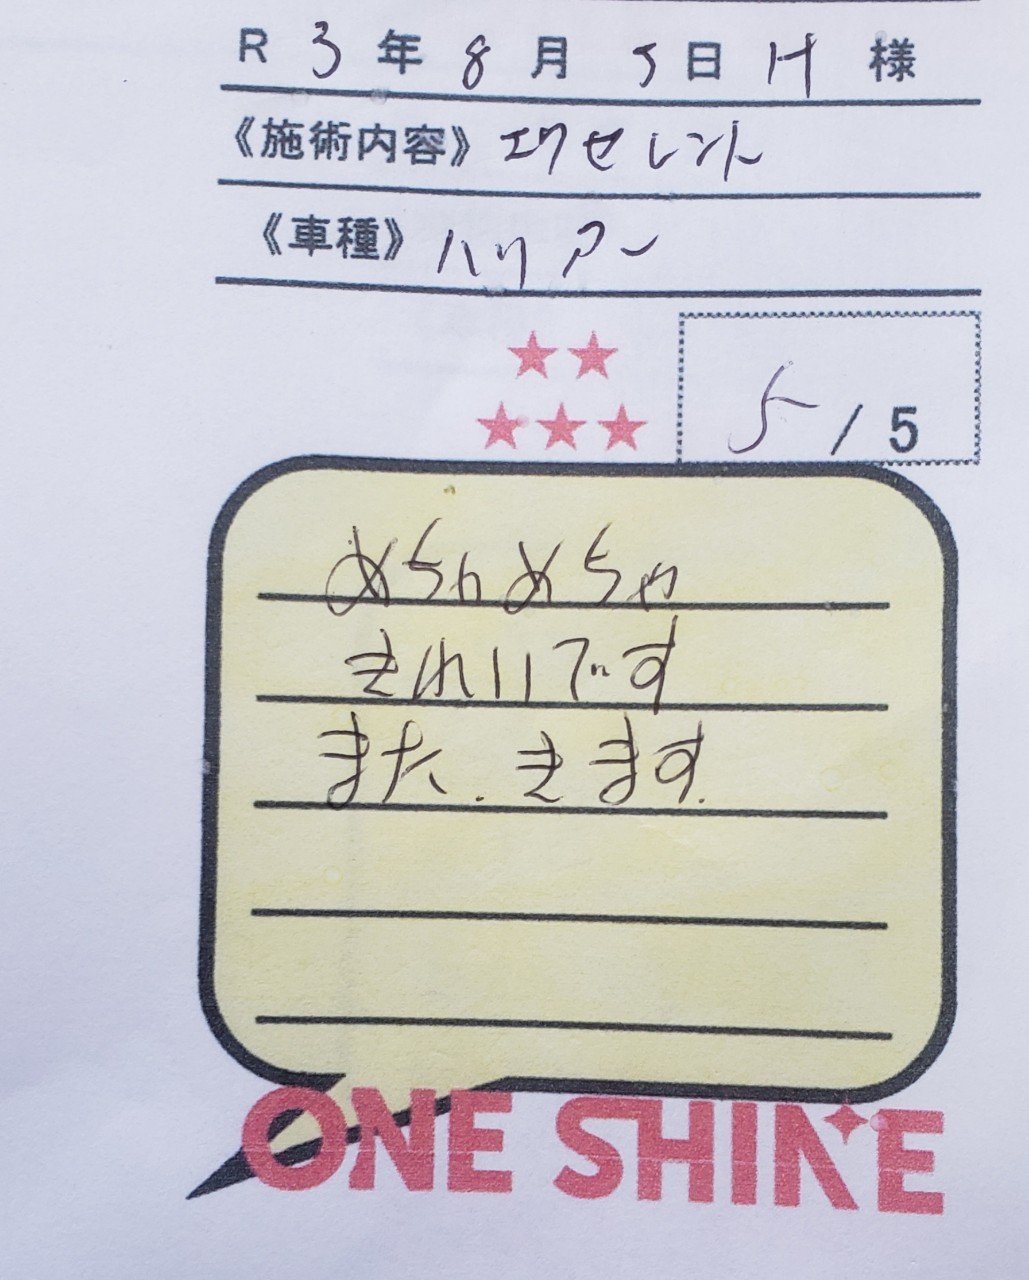 R 3年8月5日 H 様
《施術内容》エクセレント
《車種》ハリアー
5/5
めちゃめちゃ
きれいです
また.きます.
ONE SHINE